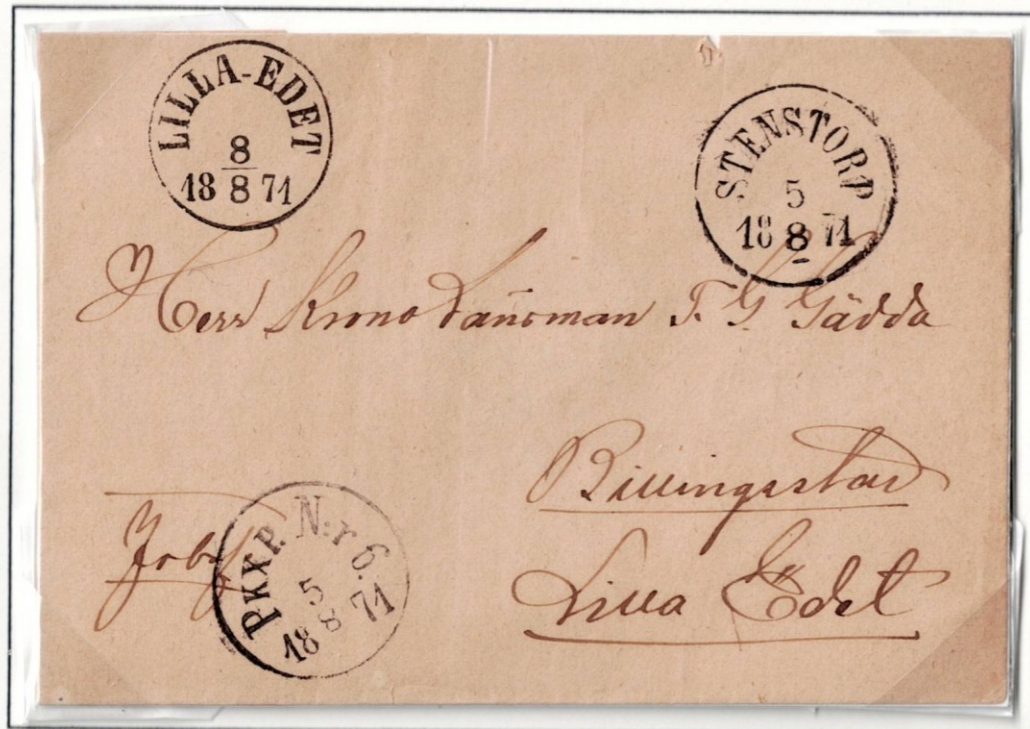 LILLA-EDET
8
18 8 71
STENSTORP
5
18 8 71
Herr Krono Länsman F. G Gädda
Billingsstad
Lilla Edet
PKXP. N:r 6.
5
18 8 71